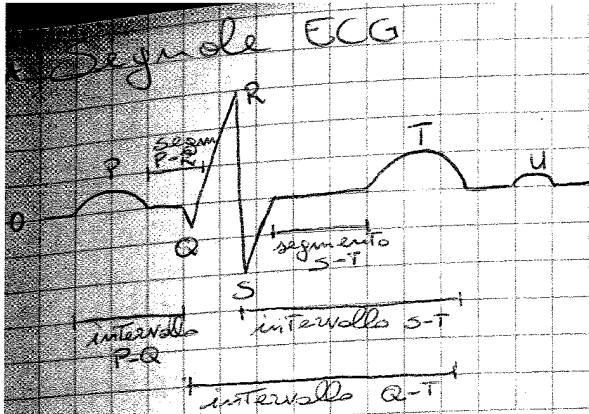 Segnale ECG
R
segm
P-R
P
T
U
0
Q
segmento
S-T
S
intervallo
P-Q
intervallo S-T
intervallo Q-T